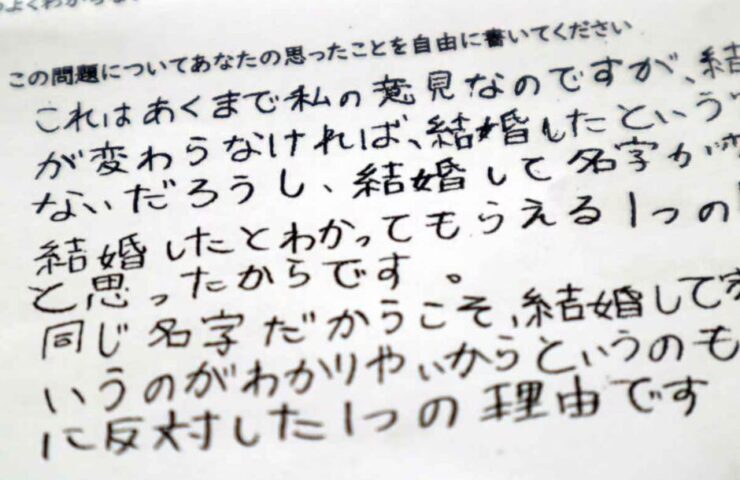 よくわからな
この問題についてあなたの思ったことを自由に書いてください
これはあくまで私の意見なのですが、結
が変わらなければ、結婚したという
ないだろうし、結婚して名字が変
結婚したとわかってもらえる1つの
と思ったからです。
同じ名字だからこそ、結婚して
いうのがわかりやいからというのも
に反対した1つの理由です